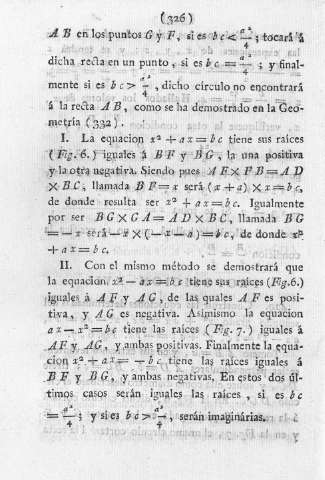 (326)
A B en los puntos G y F, si es bc < a²/4; tocará á
dicha recta en un punto, si es bc = a²/4; y final-
mente si es bc > a²/4, dicho circulo no encontrará
á la recta A B, como se ha demostrado en la Geo-
metría (332).
I. La equacion x² + ax = bc tiene sus raices
(Fig. 6.) iguales á B F y B G, la una positiva
y la otra negativa. Siendo pues A F × F B = A D
× B C, llamada B F = x será (x + a) × x = bc,
de donde resulta ser x² + ax = bc. Igualmente
por ser B G × G A = A D × B C, llamada B G
= — x será — x × (— x — a) = bc, de donde x²
+ ax = bc.
II. Con el mismo método se demostrará que
la equacion x² — ax = bc tiene sus raices (Fig. 6.)
iguales á A F y A G, de las quales A F es posi-
tiva, y A G es negativa. Asimismo la equacion
ax — x² = bc tiene las raíces (Fig. 7.) iguales á
A F y A G, y ambas positivas. Finalmente la equa-
cion x² + ax = — bc tiene las raíces iguales á
B F y B G, y ambas negativas. En estos dos úl-
timos casos serán iguales las raíces, si es bc
= a²/4; y si es bc > a²/4, serán imaginárias.